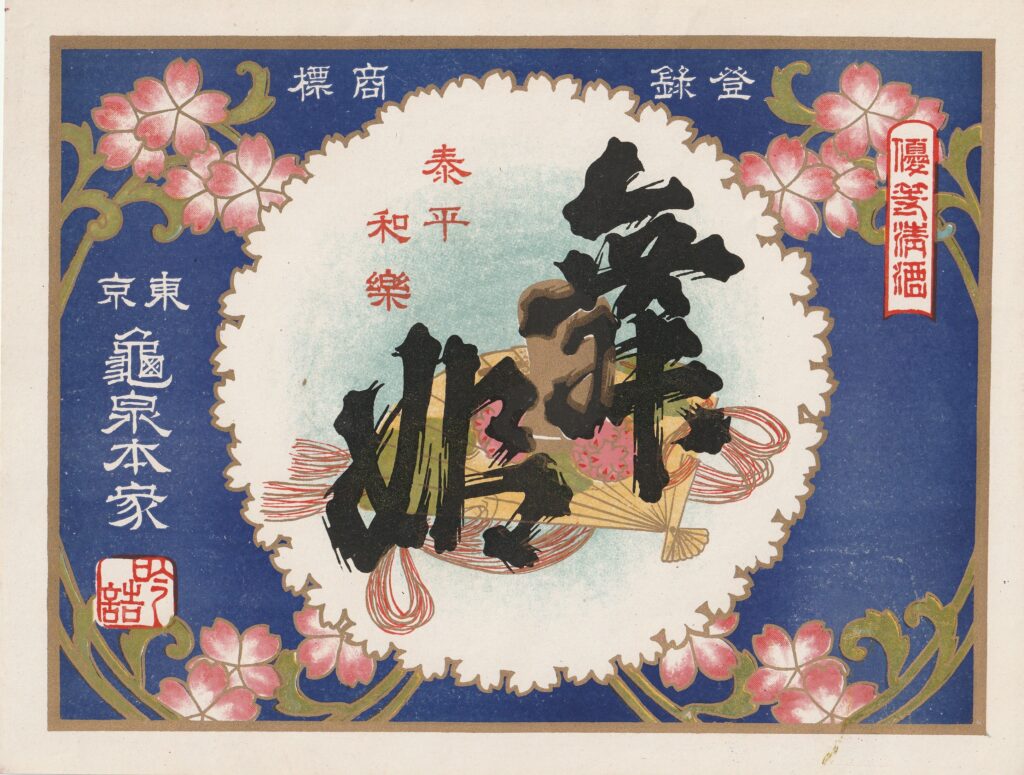 登錄
商標
優等清酒
舞姫
泰平
和樂
東京
龜泉本家
吟詰